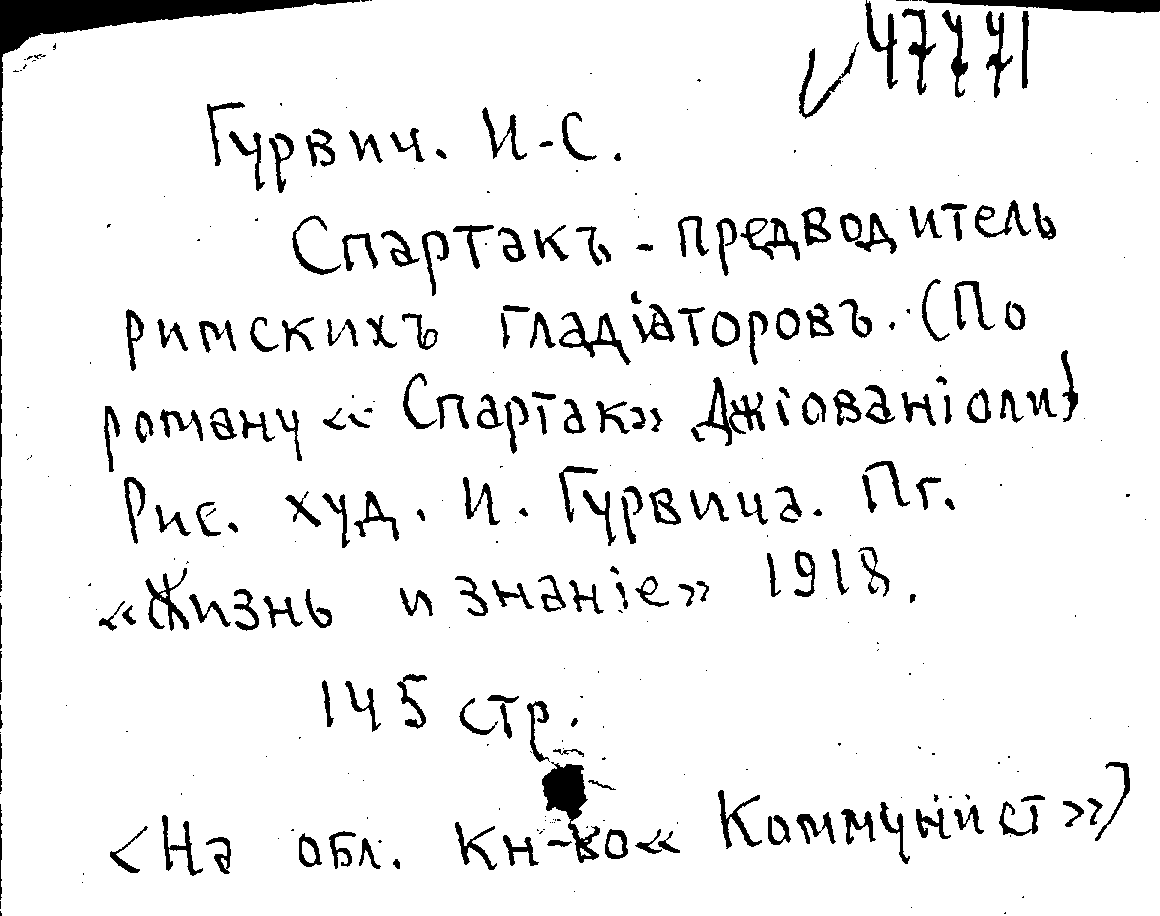 √ 47771
Гурвич. И-С.
Спартакъ - предводитель
римскихъ гладіаторовъ. (По
роману «Спартак» Джіованіоли)
Рис. худ. И. Гурвича. Пг.
«Жизнь и знаніе» 1918.
145 стр.
<На обл. кн-во «Коммунист»)